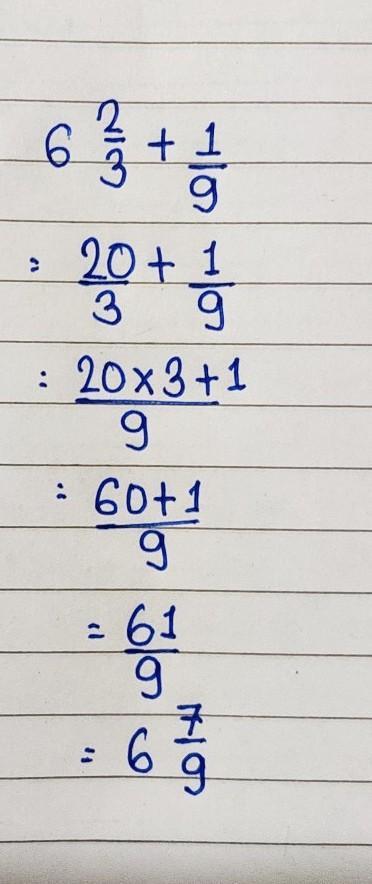 6 2/3 + 1/9
= 20/3 + 1/9
: 20×3+1/9
= 60+1/9
= 61/9
= 6 7/9